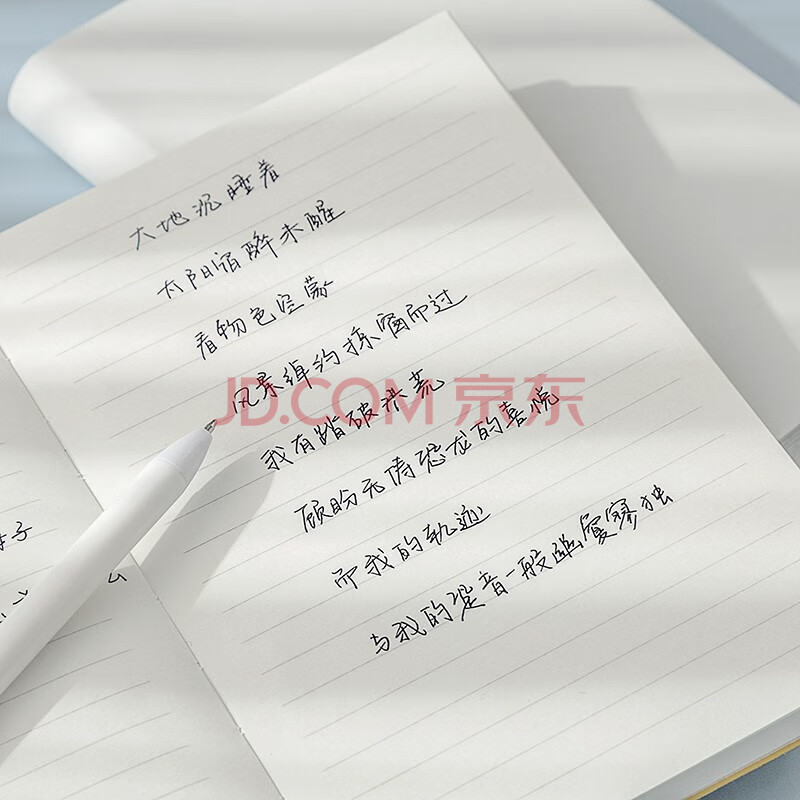 大地沉睡着
太阳宿醉未醒
看物色空蒙
风景绰约掠窗而过
我有踏破洪荒
顾盼无俦恐龙的喜悦
而我的轨迹
与我的跫音一般幽夐寥独
JD.COM 京东
子